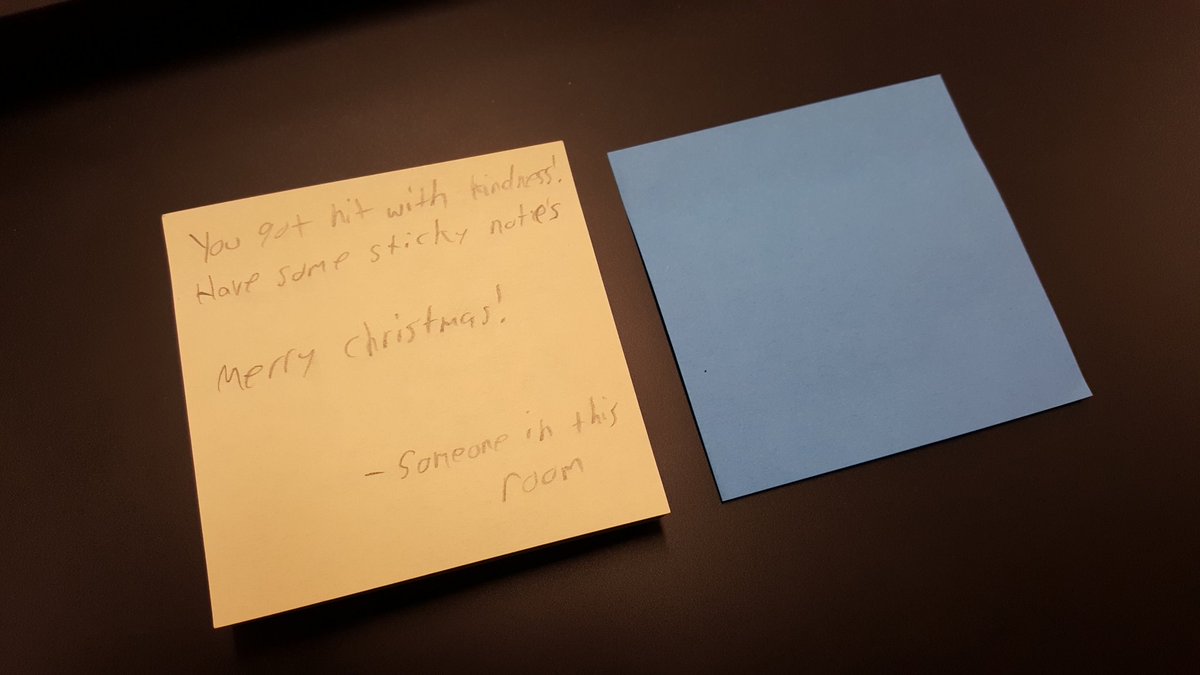 You got hit with kindness!
Have some sticky notes
Merry Christmas!
- Someone in this
room